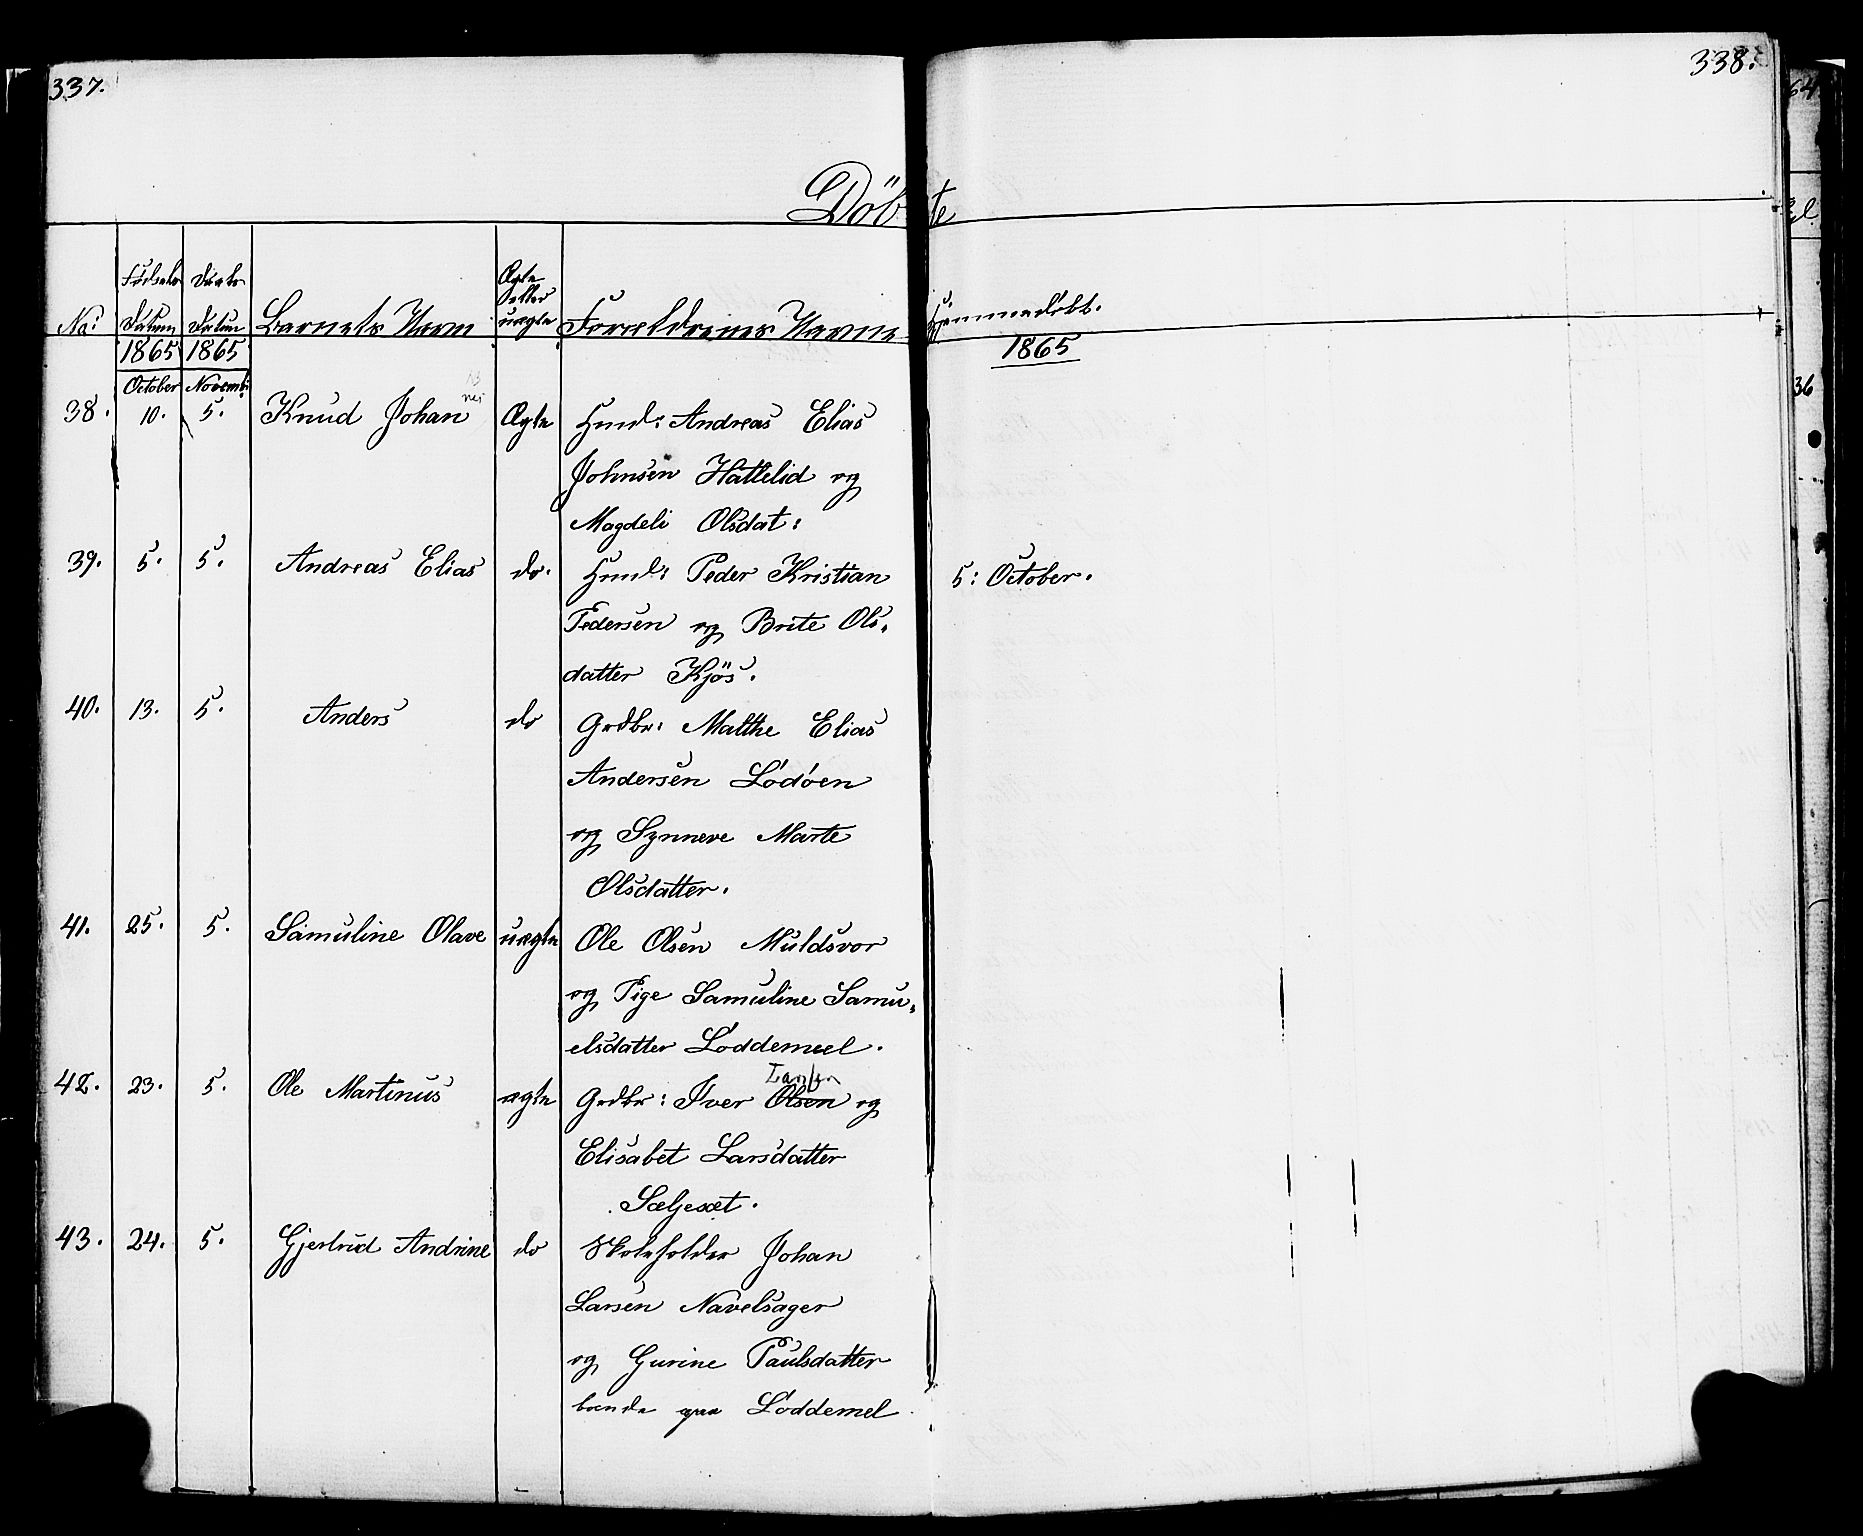 337.
338.
Döbte
No:
Fødsels
Datum
Daabs
Datum
Barnets Navn
Ægte
eller
uægte
Forældrenes Navne
Hjemmedøbt.
1865
1865
1865
October
Novemb:
38. 10. 5. Knud Johan Ægte Huusm: Andreas Elias
Johnsen Hattelid og
Magdeli Olsdat:
39. 5. 5. Andreas Elias do. Huusm: Peder Kristian 5: October.
Pedersen og Brite Ols-
datter Kjös.
40. 13. 5. Anders do Grdbr: Malthe Elias
Andersen Lødøen
og Synneve Marte
Olsdatter.
41. 25. 5. Samuline Olave uægte Ole Olsen Muldsvor
og Pige Samuline Samu-
elsdatter Loddemeel.
Larsen
42. 23. 5. Ole Martinus ægte Grdbr: Iver Olsen og
Elisabet Larsdatter
Sæljesæt.
43. 24. 5. Gjertrud Andrine do Skoleholder Johan
Larsen Navelsager
og Gurine Paulsdatter
boende paa Loddemel
36